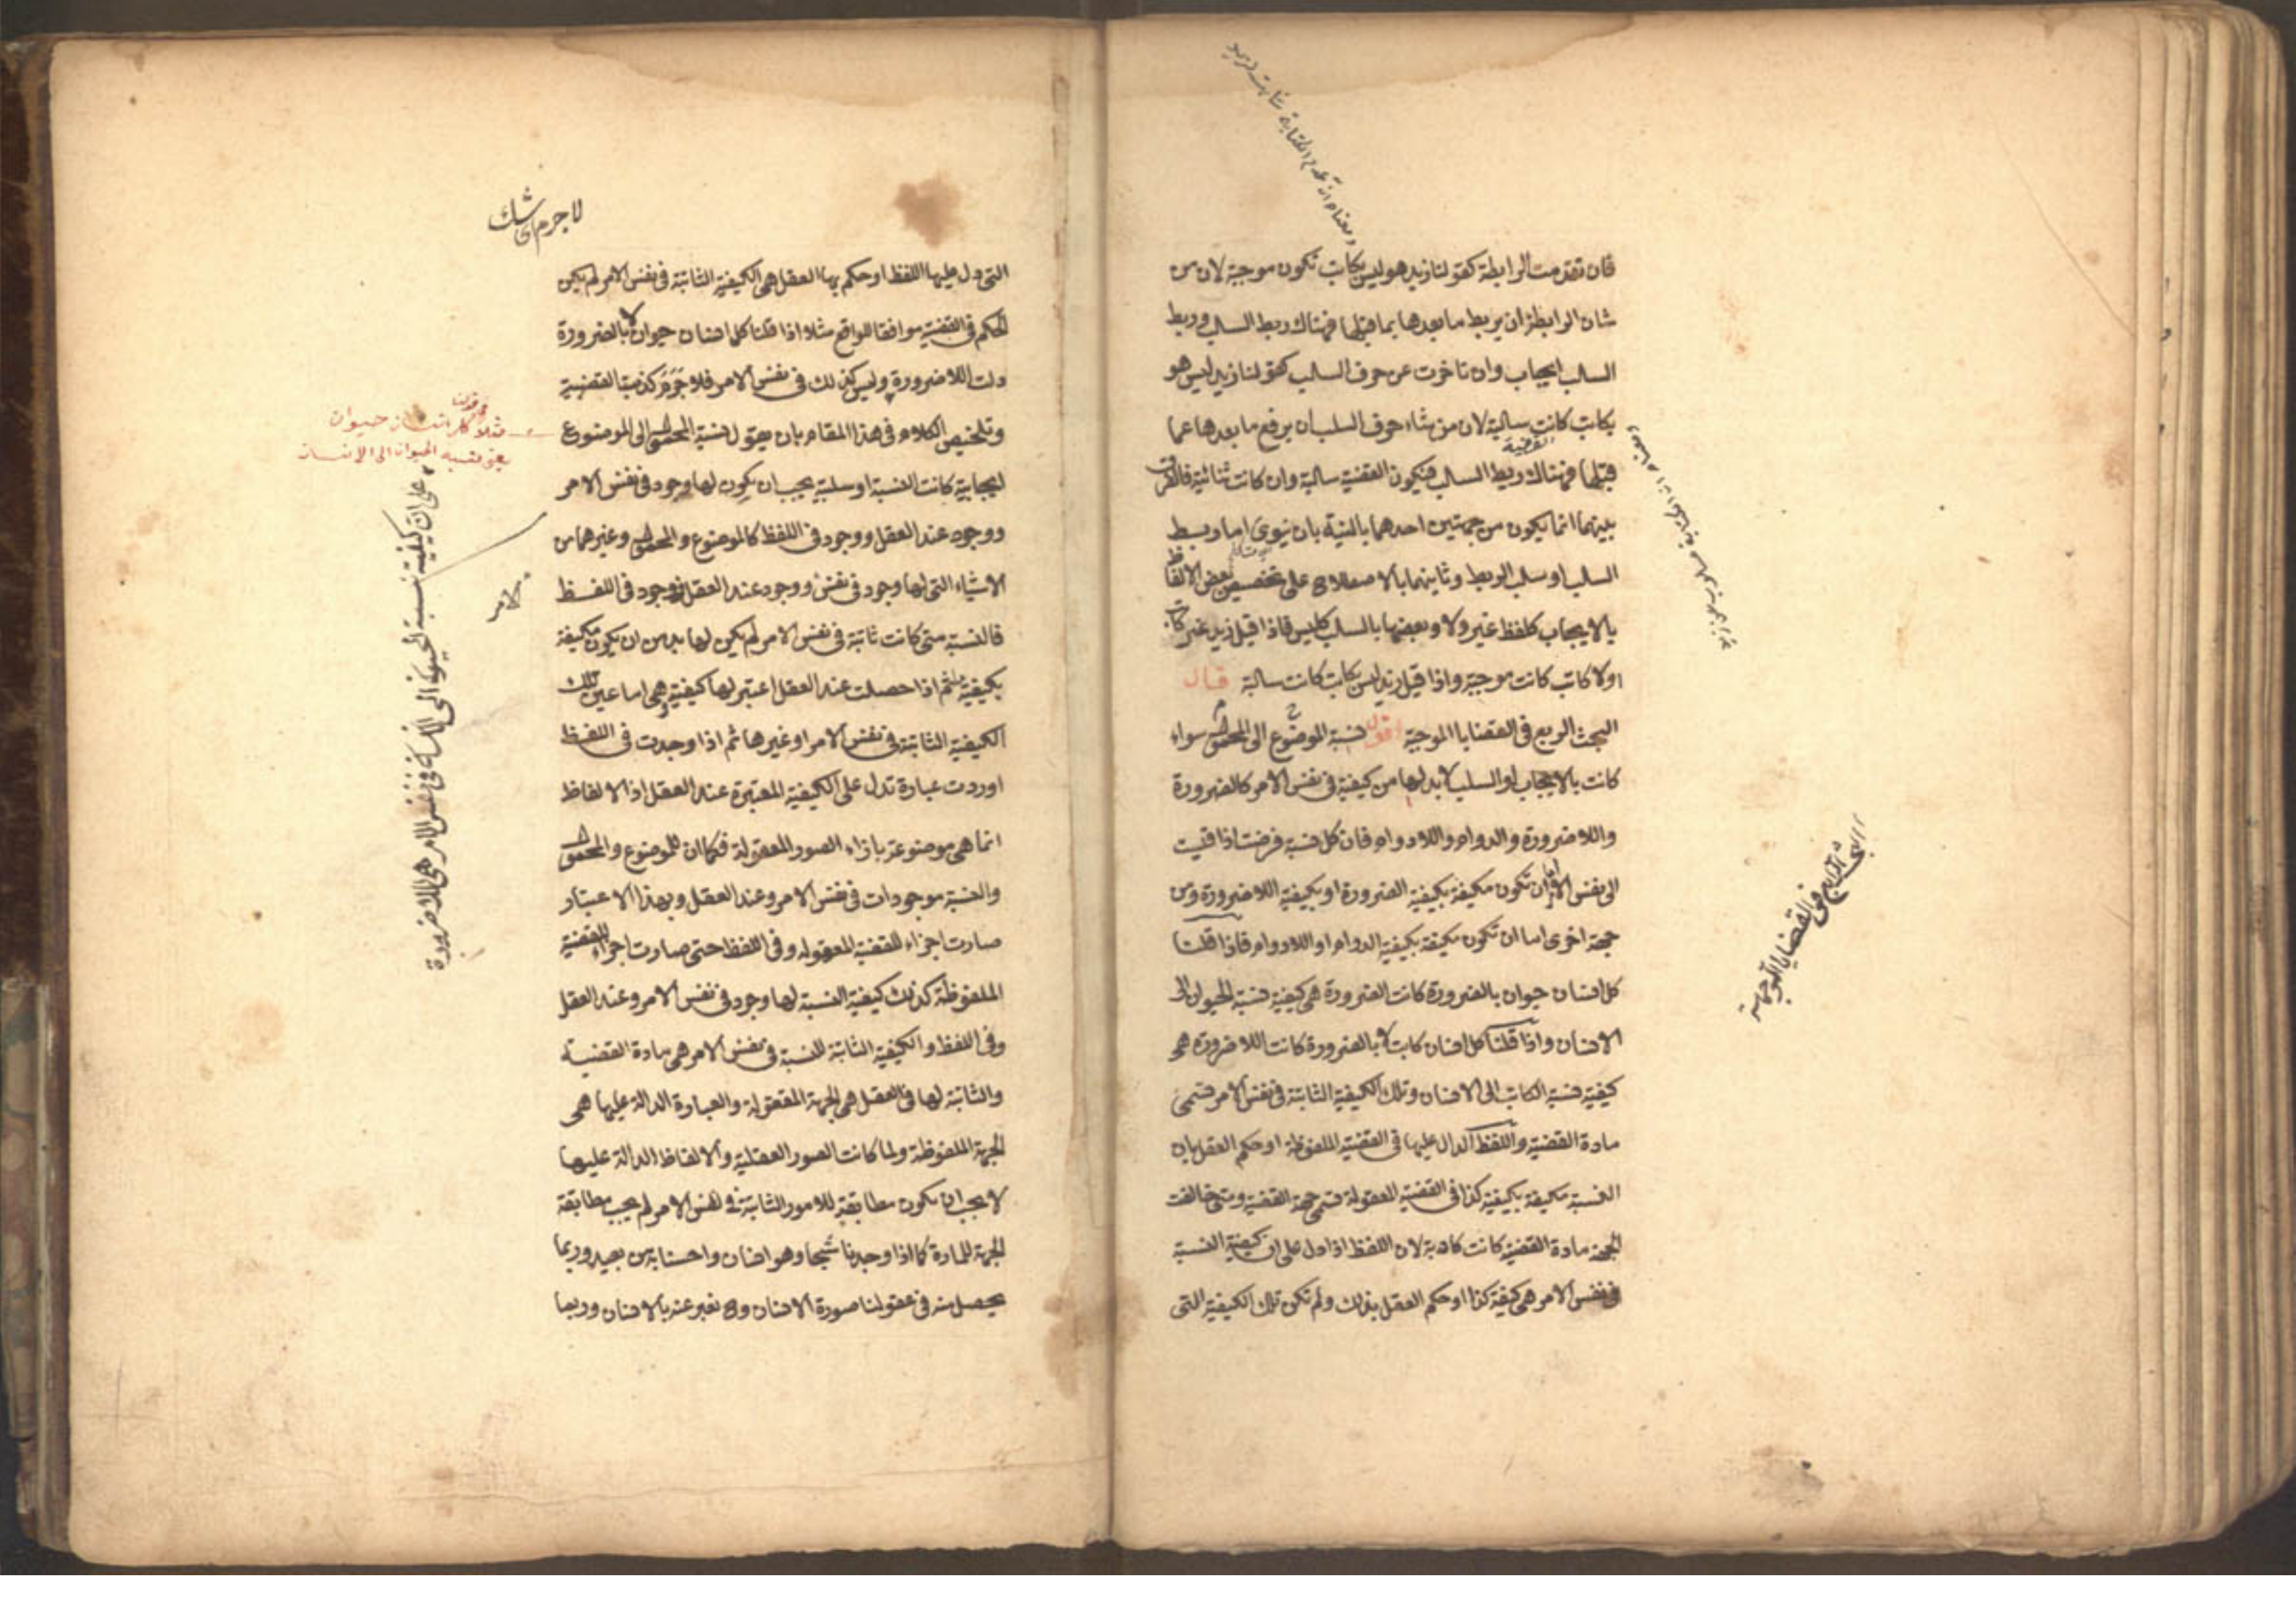 فان تقدمت الرابطة كقولنا زيد هو ليس بكاتب تكون موجبة لان من
شان الرابطة ان يربط ما بعدها بما قبلها فهناك ربط السلب وربط
السلب ايجاب وان تاخرت عن حرف السلب كقولنا زيد ليس هو
بكاتب كانت سالبة لان من شاء حرف السلب ان يرفع ما بعدها عما
قبلها فهناك ربط السلب فيكون القضية سالبة وان كانت ثنائية فالفرق
القضية
بينهما انما يكون من جهتين احدهما بالنية بان ينوى اما ربط
السلب او سلب الربط وثاينهما بالاصطلاح على تخصيص بعض الالفاظ
بالايجاب كلفظ غير ولا وبعضها بالسلب كليس فاذا قيل زيد غير كاتب
او لا كاتب كانت موجبة واذا قيل زيد ليس بكاتب كانت سالبة قال
البحث الربع فى القضايا الموجبة اقول نسبة الموضوع الى المحمول سواء
كانت بالايجاب او السلب لا بد لها من كيفية فى نفس الامر كالضرورة
واللا ضرورة والدوام واللادوام فان كل نسبة فرضت اذا قيست
الى نفس الامر اما ان تكون مكيفة بكيفية الضرورة او بكيفية اللا ضرورة ومن
جهة اخرى اما ان تكون مكيفة بكيفية الدوام او اللادوام فاذا قلنا
كل انسان حيوان بالضرورة كانت الضرورة هى كيفية نسبة الحيوان الى
الانسان واذا قلنا كل انسان كاتب لا بالضرورة كانت اللا ضرورة هى
كيفية نسبة الكاتب الى الانسان وتلك الكيفية الثابتة فى نفس الامر تسمى
مادة القضية واللفظ الدال عليها فى القضية الملفوظة او حكم العقل بان
النسبة مكيفة بكيفية كذا فى القضية المعقولة تسمى جهة القضية ومتى خالفت
الجهة مادة القضية كانت كاذبة لان اللفظ اذا دل على ان كيفية النسبة
فى نفس الامر هى كيفية كذا او حكم العقل بذلك ولم تكن تلك الكيفية التى
البحث الرابع فى القضايا الموجهة
لا جرم اى شك
التى دل عليها اللفظ او حكم بها العقل هى الكيفية الثابتة فى نفس الامر لم يكن
الحكم فى القضية موافقا للواقع مثلا اذا قلنا كل انسان حيوان لا بالضرورة
دلت اللا ضرورة وليس كذلك فى نفس الامر فلا جرم كذبت القضية
وتلخيص الكلام فى هذا المقام بان يقول نسبة المحمول الى الموضوع
ايجابية كانت النسبة او سلبية يجب ان يكون لها وجود فى نفس الامر
ووجود عند العقل ووجود فى اللفظ كالموضوع والمحمول وغيرهما من
الاشياء التى لها وجود فى نفس ووجود عند العقل ووجود فى اللفظ
فالنسبة متى كانت ثابتة فى نفس الامر لم يكن لها بد من ان يكون مكيفة
بكيفية ما ثم اذا حصلت عند العقل اعتبر لها كيفية وهى اما عين تلك
الكيفية الثابتة فى نفس الامر او غيرها ثم اذا وجدت فى اللفظ
اوردت عبارة تدل على الكيفية المعتبرة عند العقل اذ الالفاظ
انما هى موضوعة بازاء الصور المعقولة فكما ان للموضوع والمحمول
والنسبة موجودات فى نفس الامر وعند العقل وبهذا الاعتبار
صارت اجزاء للقضية المعقوله وفى اللفظ حتى صارت اجزاء للقضية
الملفوظة كذلك كيفية النسبة لها وجود فى نفس الامر وعند العقل
وفى اللفظ والكيفية الثابتة للنسبة فى نفس الامر هى مادة القضية
والثابتة لها فى العقل هى الجهة المعقولة والعبارة الدالة عليها هى
الجهة الملفوظة ولما كانت الصور العقلية والالفاظ الدالة عليها
لا يجب ان يكون مطابقة للامور الثابتة فى نفس الامر لم يجب مطابقة
الجهة للمادة كما اذا وجدنا شبحا وهو انسان واحسسنا به من بعيد وربما
يحصل منه فى عقولنا صورة الانسان وح نعبر عنه بالانسان وربما
مثلا كل انسان حيوان
يعنى نسبة الحيوان الى الانسان
على ان كيفية نسبة الحيوان الى الانسان فى نفس الامر هى اللا ضرورة